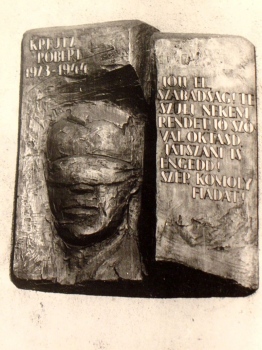 KREUTZ
RÓBERT
1923-1944
JÖJJ EL
SZABADSÁG! TE
SZÜLJ NEKEM
RENDET JÓ SZÓ
VAL OKTASD,
JÁTSZANI IS
ENGEDD
SZÉP, KOMOLY
FIADAT!